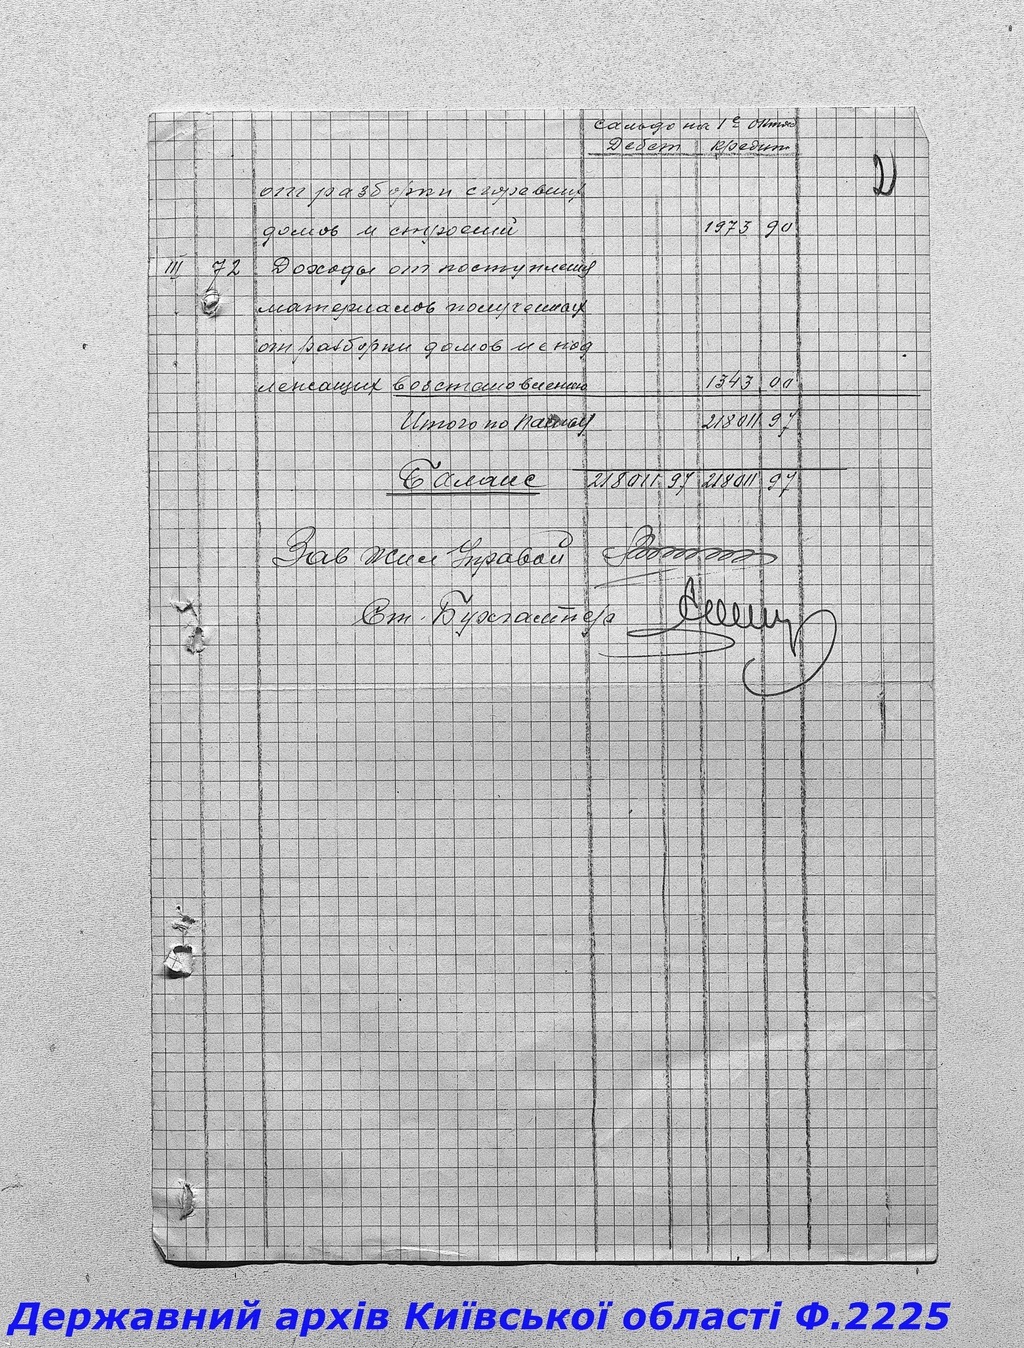 сальдо на 1е октяб
Дебет Кредит
2
от разборки сгоревших
домов и строений 1973 90
III 72 Доходы от поступления
материалов полученных
от разборки домов неподлежащих
восстановлению 1343 00
Итого по 218011 97
Баланс 218011 97 218011 97
Зав Жил Управой
Ст. Бухгалтер
Державний архів Київської області Ф.2225